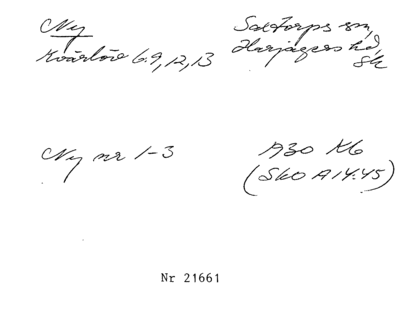 Ny
Saxtorps sn,
Kvärlöv 6.9, 12, 13
Harjagers hd,
Sk
Ny nr 1-3
A30 K6
(Sko A 14:45)
Nr 21661